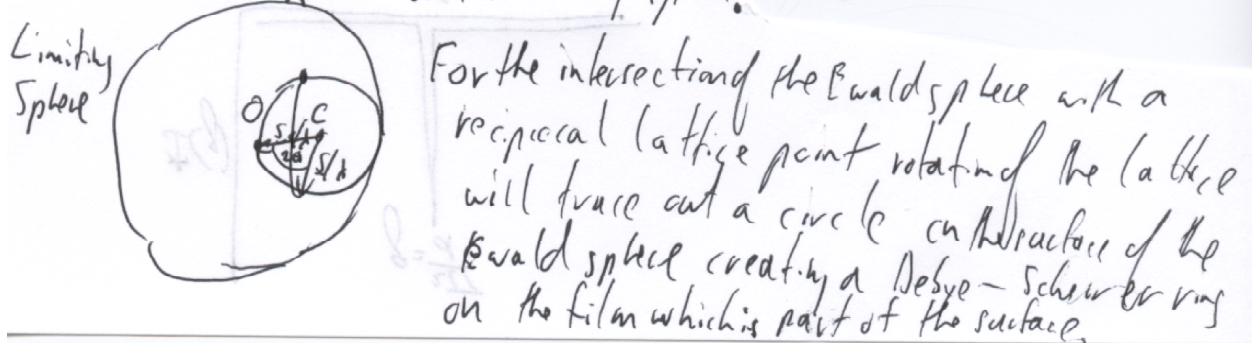 Limiting
Sphere
O
C
S/λ
2θ
S/λ
For the intersection of the Ewald sphere with a
reciprocal lattice point rotating the lattice
will trace out a circle on the surface of the
Ewald sphere creating a Debye - Scherrer ring
on the film which is part of the surface